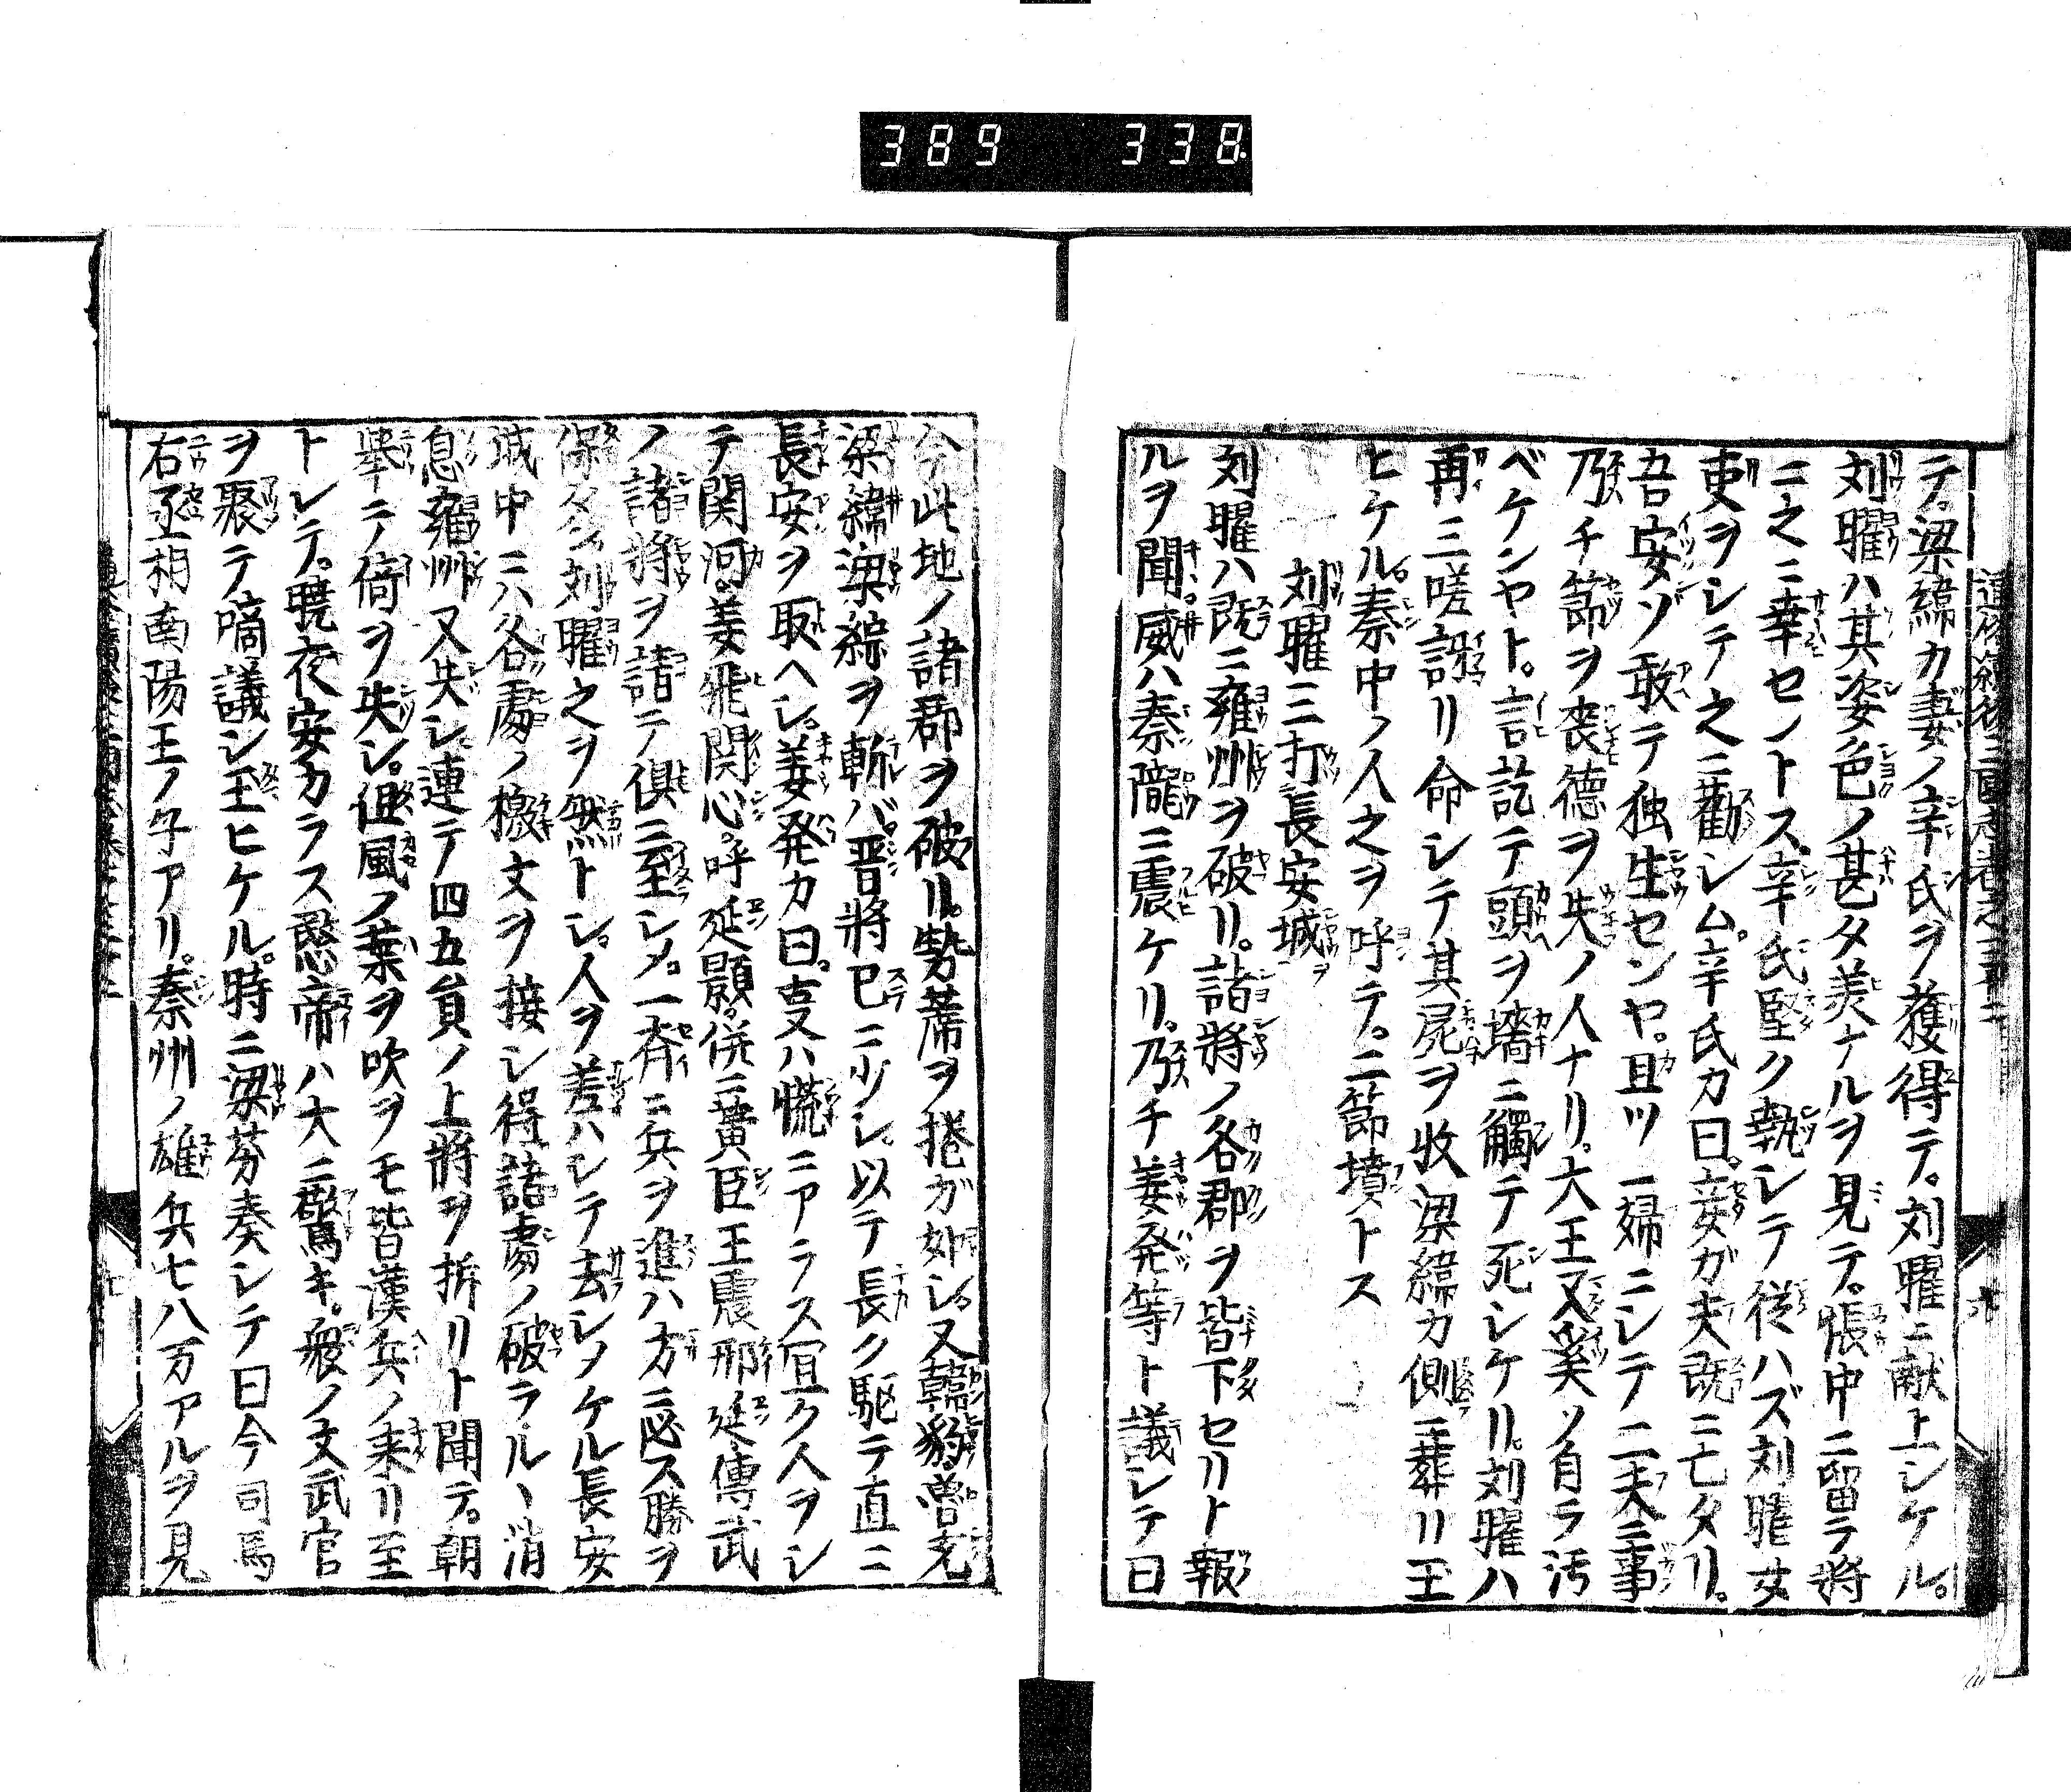 389 338
テ。梁緯カ妻ノ辛氏ヲ獲得テ。刘曜ニ献上シケル。
刘曜ハ其姿色ノ甚タ美ナルヲ見テ。帳中ニ留ラ將
ニ之ニ幸セントス。辛氏堅ク執シテ從ハズ刘曜女
吏ヲシテ之ニ勸シム。辛氏カ曰。妾ガ夫既ニ亡タリ。
吾安ゾ敢テ独生センヤ。且ツ一婦ニシテ二夫ニ事
乃チ節ヲ丧德ヲ失ノ人ナリ。大王又奚ソ自ラ汚
ベケンヤト。言訖テ頭ヲ墻ニ觸テ死シケリ。刘曜ハ
再三嗟訝リ命シテ其屍ヲ收梁緯カ側ニ葬リ玉
ヒケル。秦中ノ人之ヲ呼テ。二節墳トス
刘曜三打長安城ヲ
刘曜ハ既ニ雍州ヲ破リ。諸將ノ各郡ヲ皆下セリト報
ルヲ聞。威ハ秦隴ニ震ケリ。乃チ姜発等ト議シテ曰
今此地ノ諸郡ヲ破リ。勢蓆ヲ捲ガ如シ。又韓豹。魯充
梁緯。梁綜ヲ斬バ。晋將已ニ少シ。以テ長ク駆テ直ニ
長安ヲ取ヘシ。姜発カ曰。支ハ慌ニアラス宜ク人ヲシ
テ関河。姜飛関心。呼延顥。併ニ黄臣王震邢延。傳武
ノ諸將ヲ請テ俱ニ至シメ。一斉ニ兵ヲ進ハ方ニ必ス勝ヲ
保タン。刘曜之ヲ然トシ。人ヲ差ハシテ去シメケル長安
城中ニハ各處ノ檄文ヲ接シ得諸處ノ破ラルヽ消
息雍州又失シ連テ四五貟ノ上將ヲ折リト聞テ。朝
舉テ倚ヲ失シ。俱風ノ葉ヲ吹ヲモ皆漢兵ノ來リ至
トシテ。曉夜安カラス愍帝ハ大ニ驚キ。衆ノ文武官
ヲ聚テ啇議シ玉ヒケル。時ニ梁芬奏シテ曰今司馬
右丞相南陽王ノ子アリ。秦州ノ雄兵七八万アルヲ見